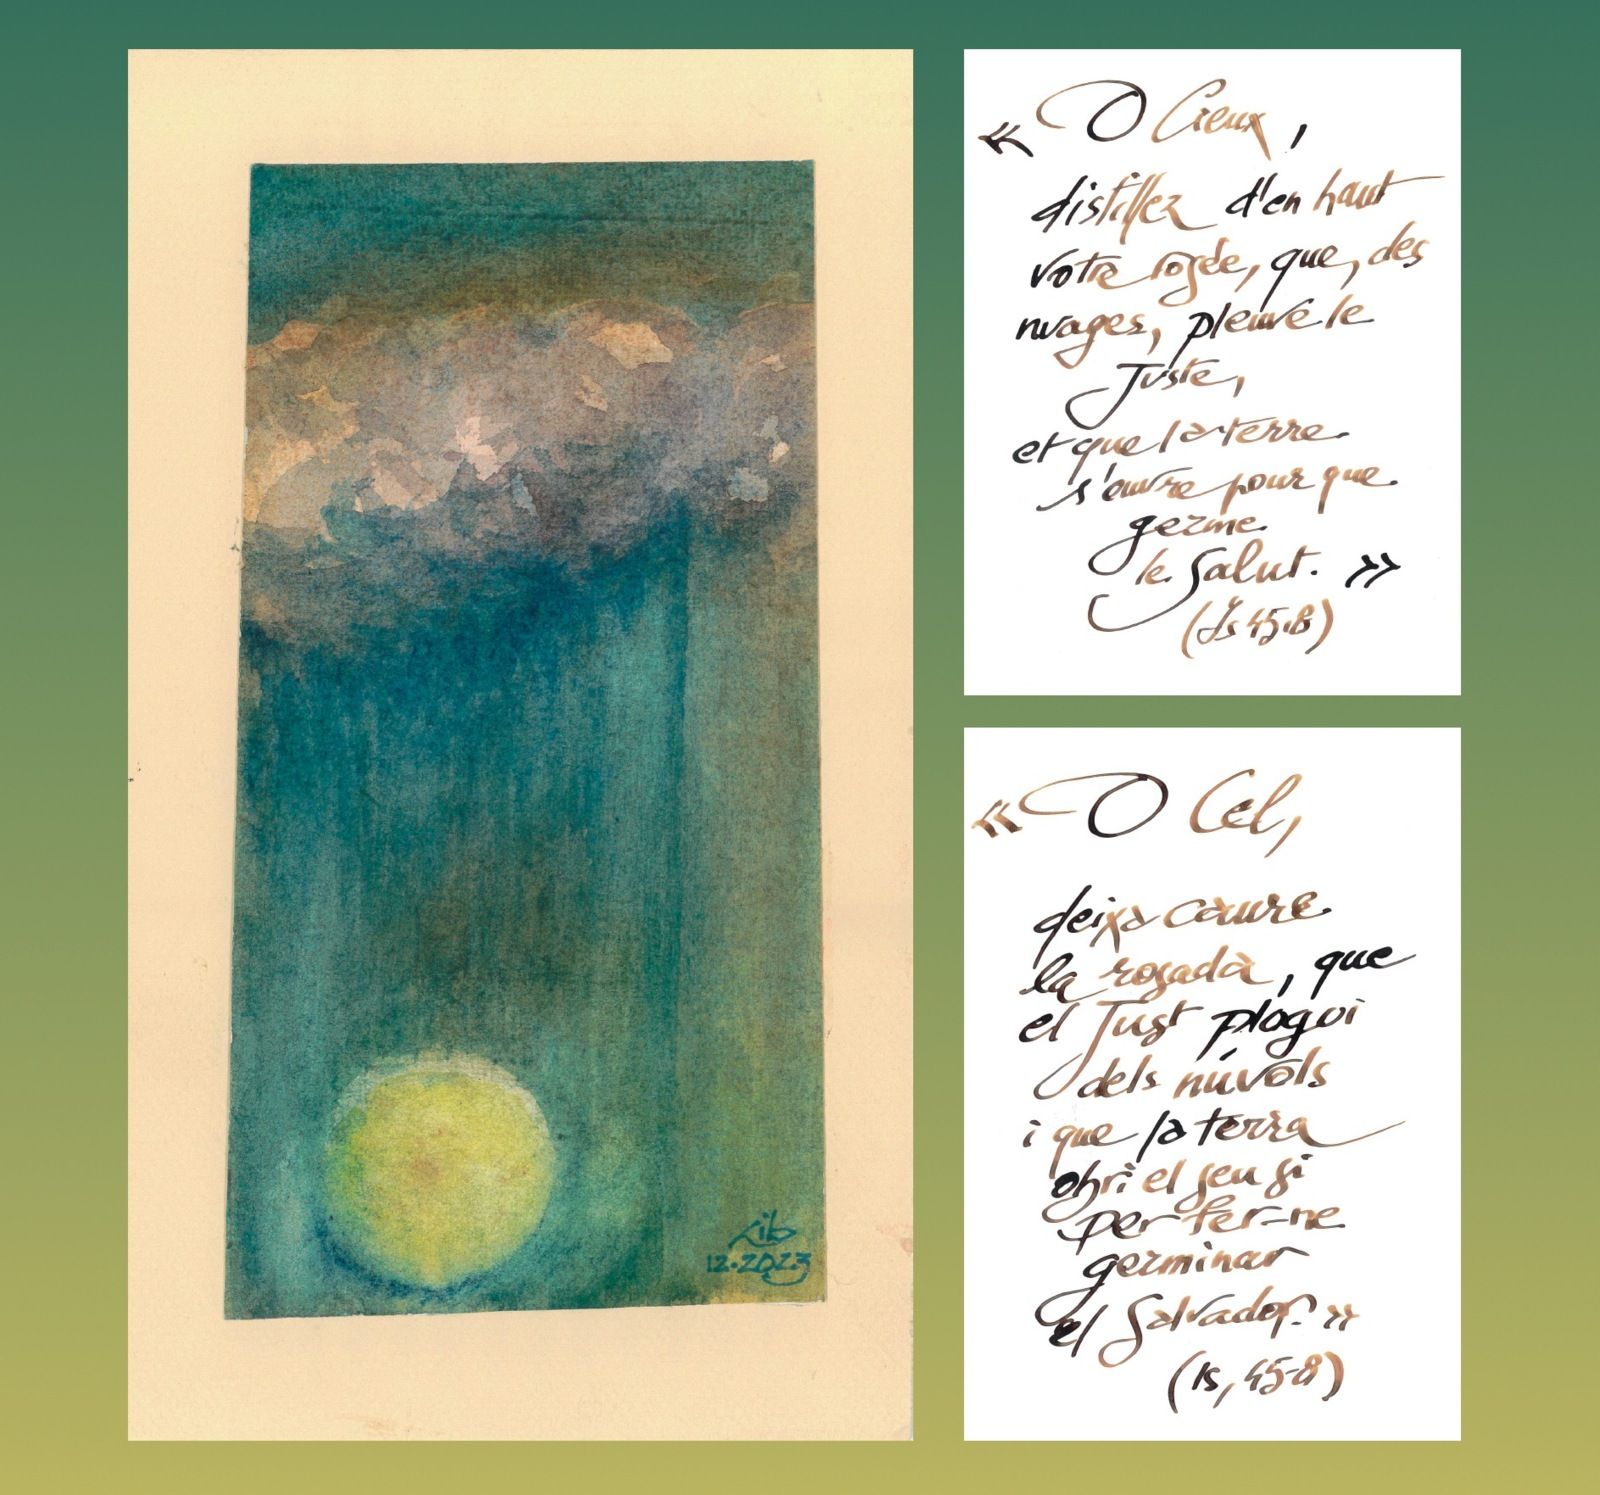 Lib
12.2023
« O Cieux,
distillez d'en haut
votre rosée, que, des
nuages, pleuve le
Juste,
et que la terre
s'ouvre pour que
germe
le Salut. »
(Is 45.8)
« O Cel,
deixa caure
la rosada, que
el Just plogui
dels núvols
i que la terra
obri el seu si
per fer-ne
germinar
el Salvador. »
(Is, 45-8)